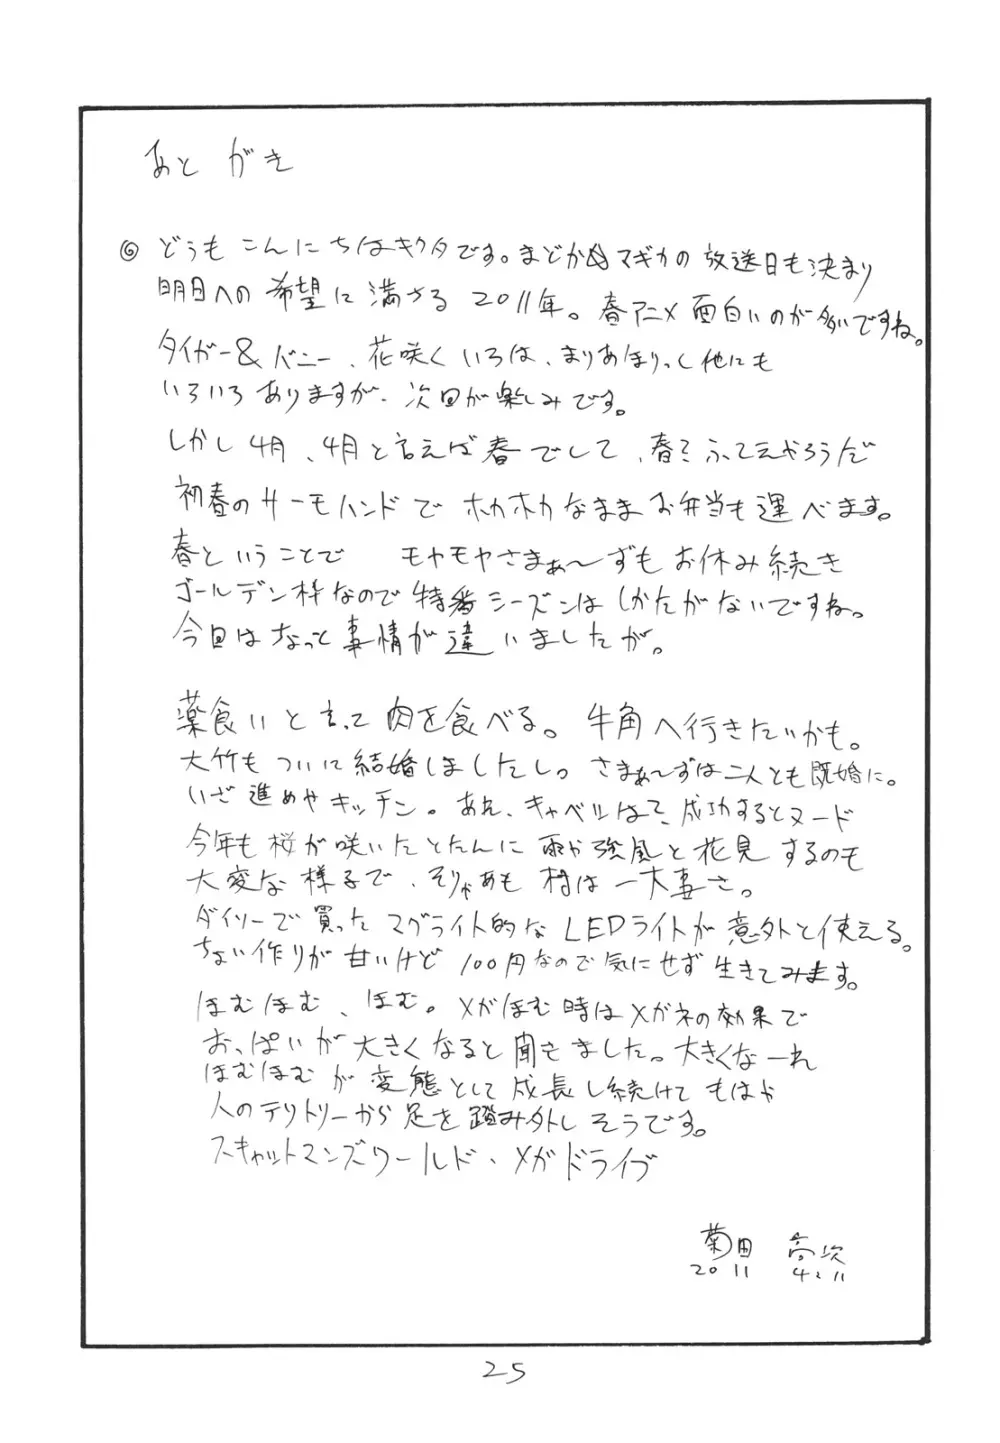 あとがき
◎ どうもこんにちはキクタです。まどか☆マギカの放送日も決まり
明日への希望に満ちる 2011年。春アニメ面白いのが多いですね。
タイガー&バニー、花咲くいろは、まりあほりっく他にも
いろいろありますが、次回が楽しみです。
しかし4月、4月と言えば春でして、春
初春のサーモハンドでホカホカなままお弁当も運べます。
春ということで モヤモヤさまぁ〜ずもお休み続き
ゴールデン枠なので特番シーズンはしかたがないですね。
今回はちょっと事情が違いましたが。
薬食いと言って肉を食べる。牛角へ行きたいかも。
大竹もついに結婚しましたし。さまぁ〜ずは二人とも既婚に。
いざ進めやキッチン。あれ、キャベツはて、成功するとヌード
今年も桜が咲いたとたんに雨や強風と花見するのも
大変な様子で、そりゃあも村は一大事さ。
ダイソーで買ったマグライト的なLEDライトが意外と使える。
ちょい作りが甘いけど100円なので気にせず生きてみます。
ほむほむ、ほむ。メガほむ時はメガネの効果で
おっぱいが大きくなると聞きました。大きくなーれ
ほむほむが変態として成長し続けてもはや
人のテリトリーから足を踏み外しそうです。
スキャットマンズワールド・メガドライブ
菊田 高次
2011 4.11
25